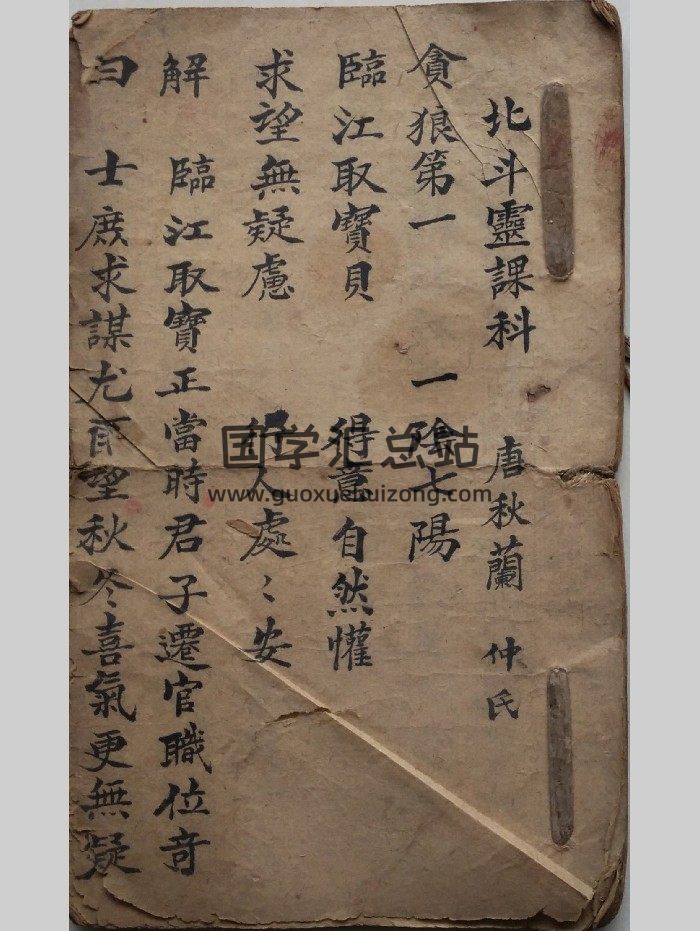 北斗靈課科 唐秋蘭 仲氏
貪狼第一 一陰七陽
臨江取寶貝 得意自然懽
求望無疑慮 行人處〻安
解 臨江取寶正當時君子遷官職位奇
曰 士庶求謀尤有望秋冬喜氣更無疑
国学汇总站
www.guoxuehuizong.com